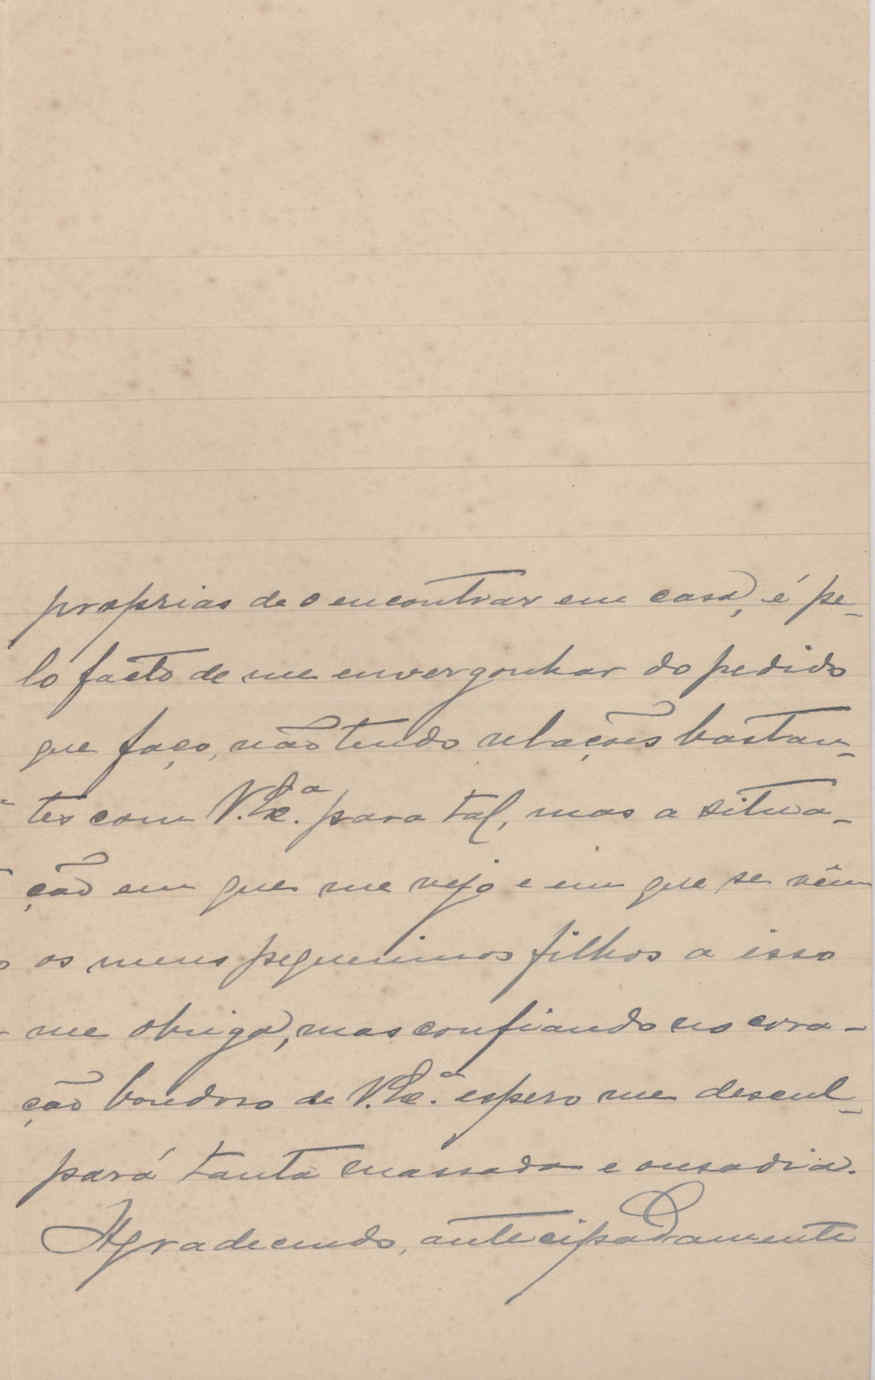 proprias de o encontrar em casa, é pe-
lo facto de me envergonhar do pedido
que faço, não tendo relações bastan-
tes com V. Exª. para tal, mas a situa-
ção em que me vejo e em que se vêm
os meus pequeninos filhos a isso
me obriga, mas confiando no cora-
ção bondoso de V. Exª. espero me descul-
pará tanta massada e ousadia.
Agradecendo, antecipadamente